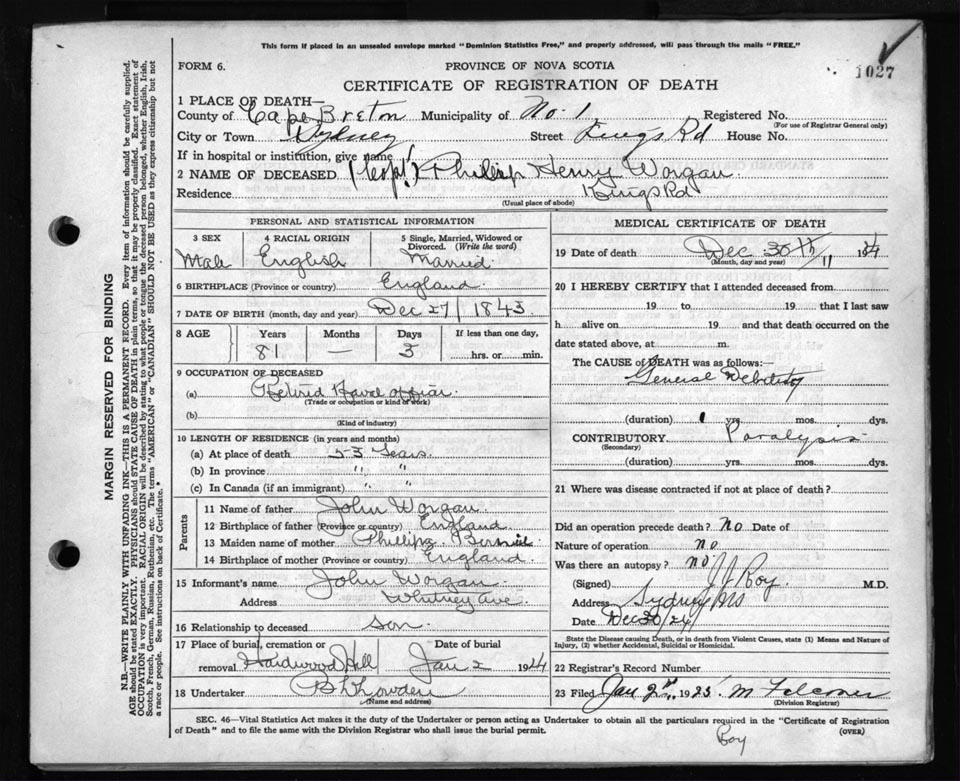 This form if placed in an unsealed envelope marked "Dominion Statistics Free," and properly addressed, will pass through the mails "FREE."
FORM 6.
PROVINCE OF NOVA SCOTIA
1027
CERTIFICATE OF REGISTRATION OF DEATH
1 PLACE OF DEATH—
County of Cape Breton Municipality of No. 1 Registered No.
(For use of Registrar General only)
City or Town Sydney Street Kings Rd House No.
If in hospital or institution, give name
2 NAME OF DECEASED (Capt) Phillip Henry Worgan
Residence Kings Rd
(Usual place of abode)
PERSONAL AND STATISTICAL INFORMATION
3 SEX 4 RACIAL ORIGIN 5 Single, Married, Widowed or Divorced. (Write the word)
Male English Married.
6 BIRTHPLACE (Province or country) England
7 DATE OF BIRTH (month, day and year) Dec 27 / 1843
8 AGE Years Months Days If less than one day,
81 — 3 hrs. or min.
9 OCCUPATION OF DECEASED
(a) Retired Naval officer
(Trade or occupation or kind of work)
(b)
(Kind of industry)
10 LENGTH OF RESIDENCE (in years and months)
(a) At place of death 53 Years.
(b) In province " "
(c) In Canada (if an immigrant) " "
Parents
11 Name of father John Worgan
12 Birthplace of father (Province or country) England
13 Maiden name of mother Phillipa
14 Birthplace of mother (Province or country) England
15 Informant's name John Worgan
Address Whitney Ave
16 Relationship to deceased son
17 Place of burial, cremation or Date of burial
removal Hardwood Hill Jan 2 1924
18 Undertaker
(Name and address)
MEDICAL CERTIFICATE OF DEATH
19 Date of death Dec 30th 11 1924
(Month, day and year)
20 I HEREBY CERTIFY that I attended deceased from
19 to 19 that I last saw
h alive on 19 and that death occurred on the
date stated above, at m.
The CAUSE OF DEATH was as follows:—
General Debility
(duration) 1 yrs. mos. dys.
CONTRIBUTORY Paralysis
(Secondary)
(duration) yrs. mos. dys.
21 Where was disease contracted if not at place of death?
Did an operation precede death? No Date of
Nature of operation no
Was there an autopsy? no
(Signed) J J Roy M.D.
Address Sydney NS
Date Dec 30/24
State the Disease causing Death, or in death from Violent Causes, state (1) Means and Nature of
Injury, (2) whether Accidental, Suicidal or Homicidal.
22 Registrar's Record Number
23 Filed Jan 2nd 1925
(Division Registrar)
SEC. 46—Vital Statistics Act makes it the duty of the Undertaker or person acting as Undertaker to obtain all the particulars required in the "Certificate of Registration
of Death" and to file the same with the Division Registrar who shall issue the burial permit.
(OVER)
Roy
MARGIN RESERVED FOR BINDING
N.B.—WRITE PLAINLY WITH UNFADING INK—THIS IS A PERMANENT RECORD. Every item of information should be carefully supplied.
AGE should be stated EXACTLY. PHYSICIANS should STATE CAUSE OF DEATH in plain terms, so that it may be properly classified. Exact statement of
OCCUPATION is very important. RACIAL ORIGIN will be described by stating to what people or tongue the deceased person belonged, whether English, Irish,
Scotch, French, German, Russian, Ruthenian, etc. The terms "AMERICAN" or "CANADIAN" SHOULD NOT BE USED as they express citizenship but not
a race or people. See instructions on back of Certificate.